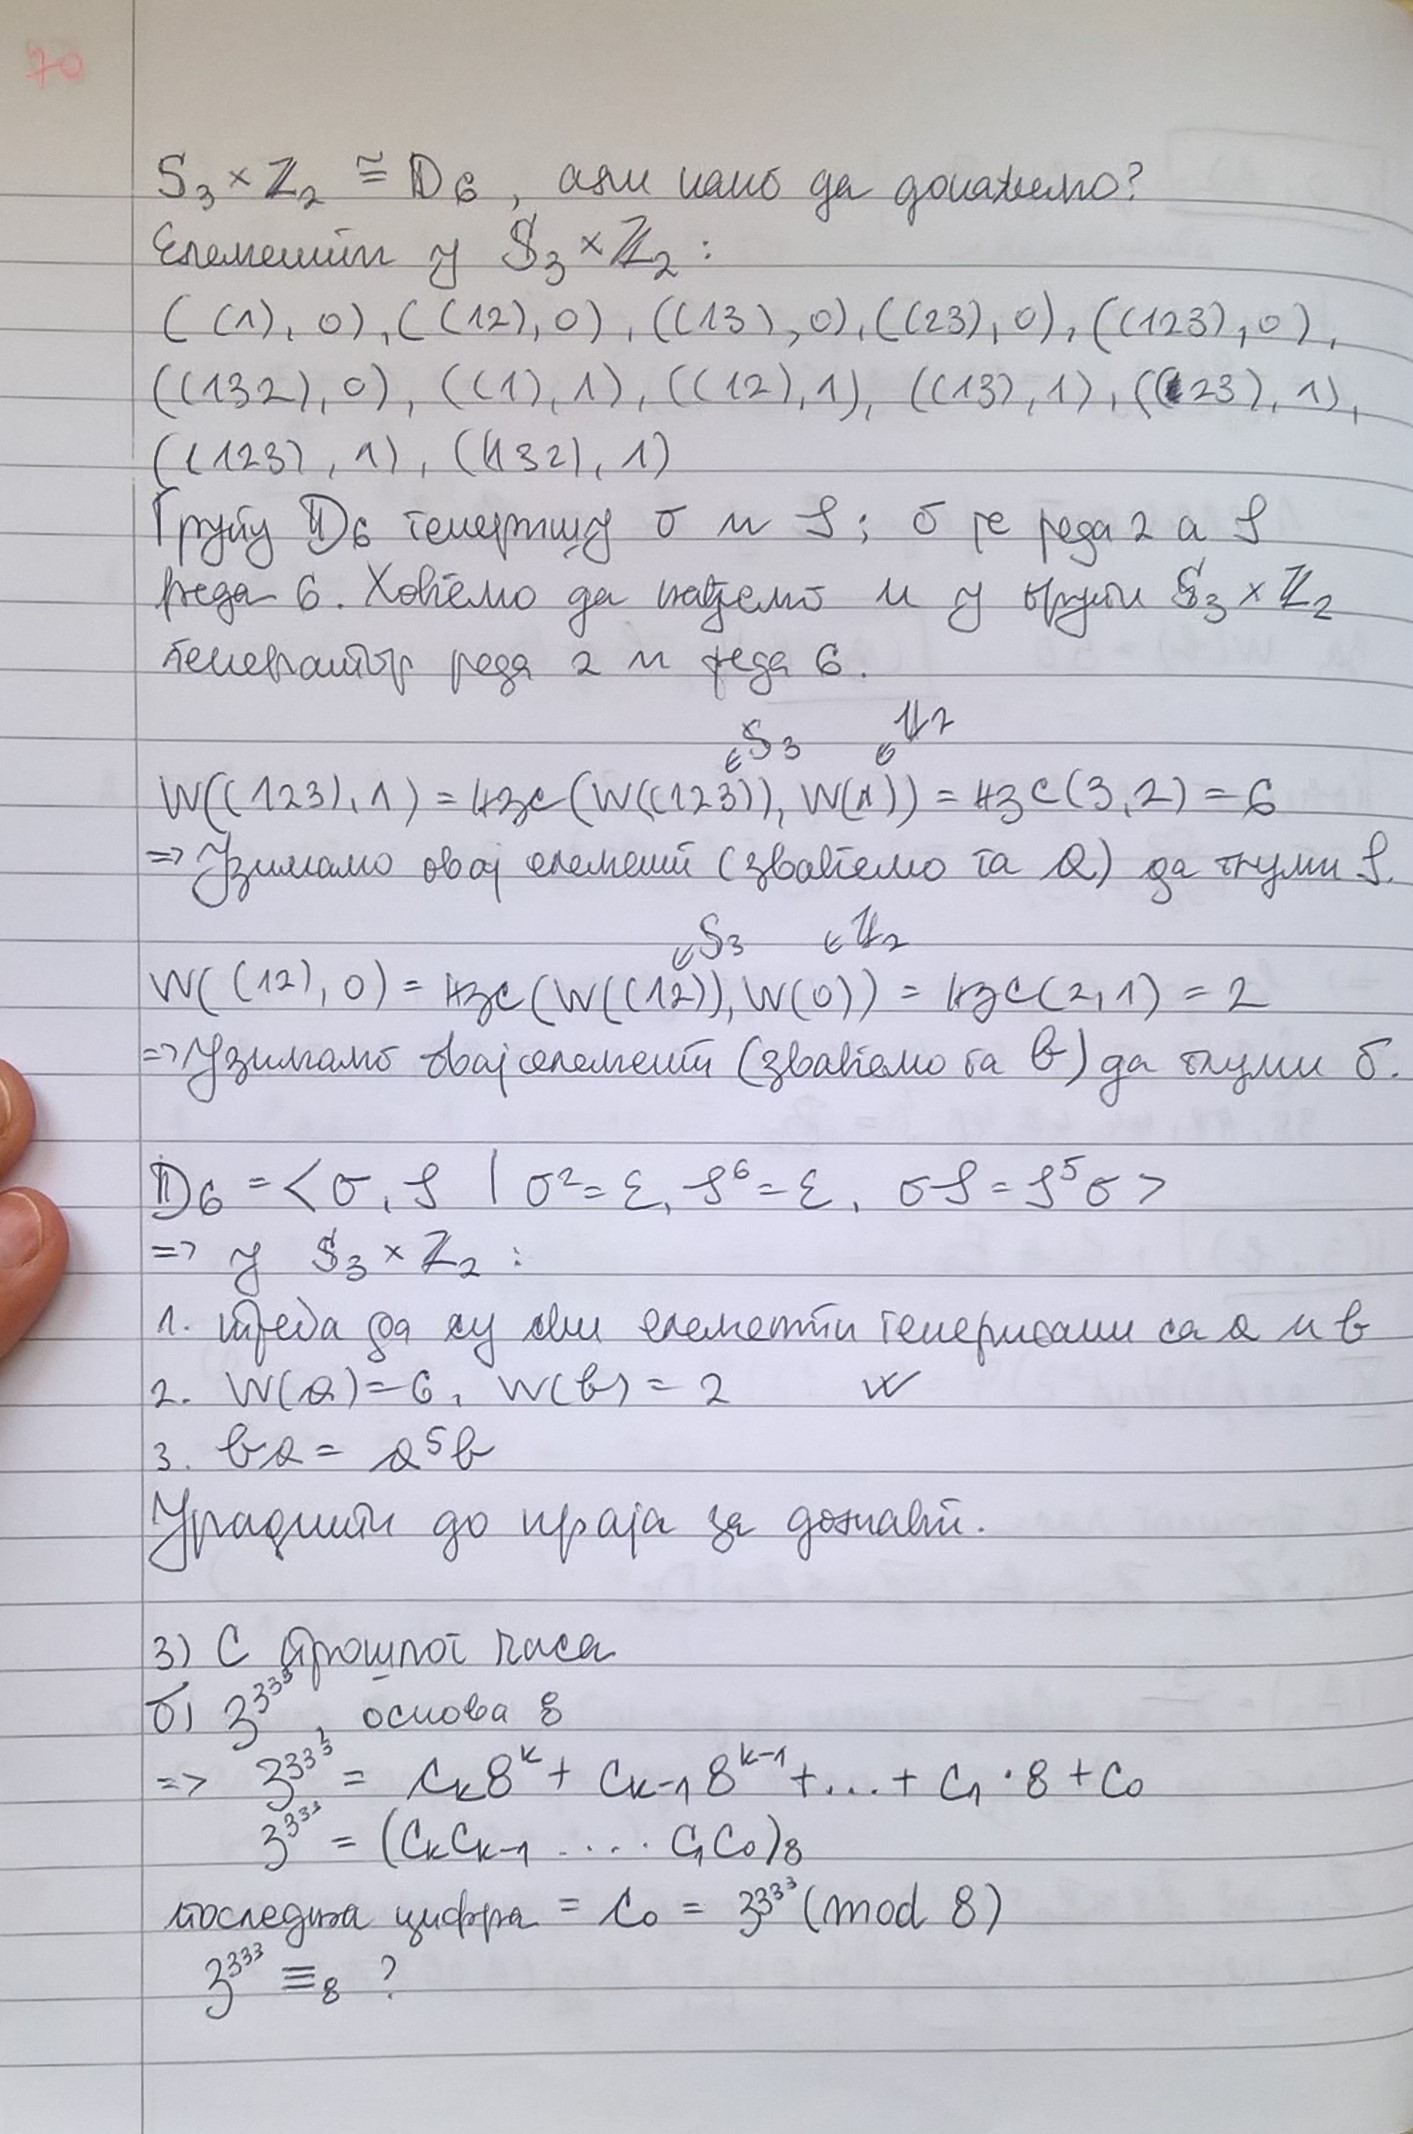 70
S₃ × ℤ₂ ≅ D₆, али како да докажемо?
Елементи у S₃ × ℤ₂:
((1), 0), ((12), 0), ((13), 0), ((23), 0), ((123), 0),
((132), 0), ((1), 1), ((12), 1), ((13), 1), ((23), 1),
((123), 1), ((132), 1)
Групу D₆ генеришу σ и ρ; σ је реда 2 а ρ
реда 6. Хоћемо да нађемо и у групи S₃ × ℤ₂
генератор реда 2 и реда 6.
∈S₃ ∈ℤ₂
W((123), 1) = НЗС(W((123)), W(1)) = НЗС(3, 2) = 6
=> Узимамо овај елемент (зваћемо га a) да глуми ρ.
∈S₃ ∈ℤ₂
W((12), 0) = НЗС(W((12)), W(0)) = НЗС(2, 1) = 2
=> Узимамо овај елемент (зваћемо га b) да глуми σ.
D₆ = <σ, ρ | σ² = ε, ρ⁶ = ε, σρ = ρ⁵σ>
=> у S₃ × ℤ₂:
1. треба да су сви елементи генерисани са a и b
2. W(a) = 6, W(b) = 2 W
3. ba = a⁵b
Урадити до краја за домаћи.
3) С прошлог часа
б) 3^3^3^3^3, основа 8
=> 3^3^3^3 = cₖ8ᵏ + cₖ₋₁8ᵏ⁻¹ + ... + c₁·8 + c₀
3^3^3^3 = (cₖcₖ₋₁ .... c₁c₀)₈
последња цифра = c₀ = 3^3^3^3 (mod 8)
3^3^3^3 ≡₈ ?